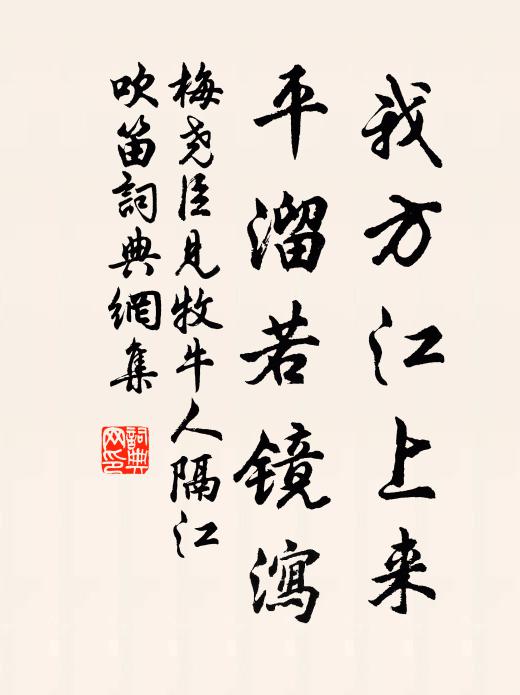 我方江上来
平溜若镜瀉
梅尧臣見牧牛人隔江
吹笛詞典網集
詞典
网印